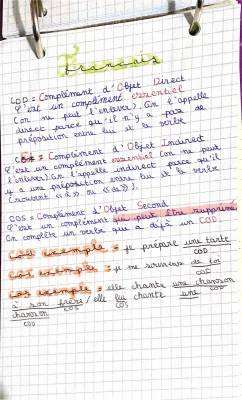 Francais
COD = Complément d'Objet Direct
C'est un complément essentiel
(on ne peut l'enlever). On l'appelle
direct parce qu'il n'y a pas de
préposition entre lui et le verbe
COI = Complément d'Objet Indirect
C'est un complément essentiel (on ne peut
l'enlever). On l'appelle indirect parce qu'il
y a une préposition entre lui et le verbe
(souvent «à» ou «de»).
COS = Complément d'Objet Second
C'est un complément qui peut être supprimé
On complète un verbe qui a déjà un COD.
COD exemple : je prépare une tarte
COD
COI exemple : je me souviens de toi
COI
COS exemple : elle chante une chanson
COD
à son frère / elle lui chante une
COS COS
chanson
COD